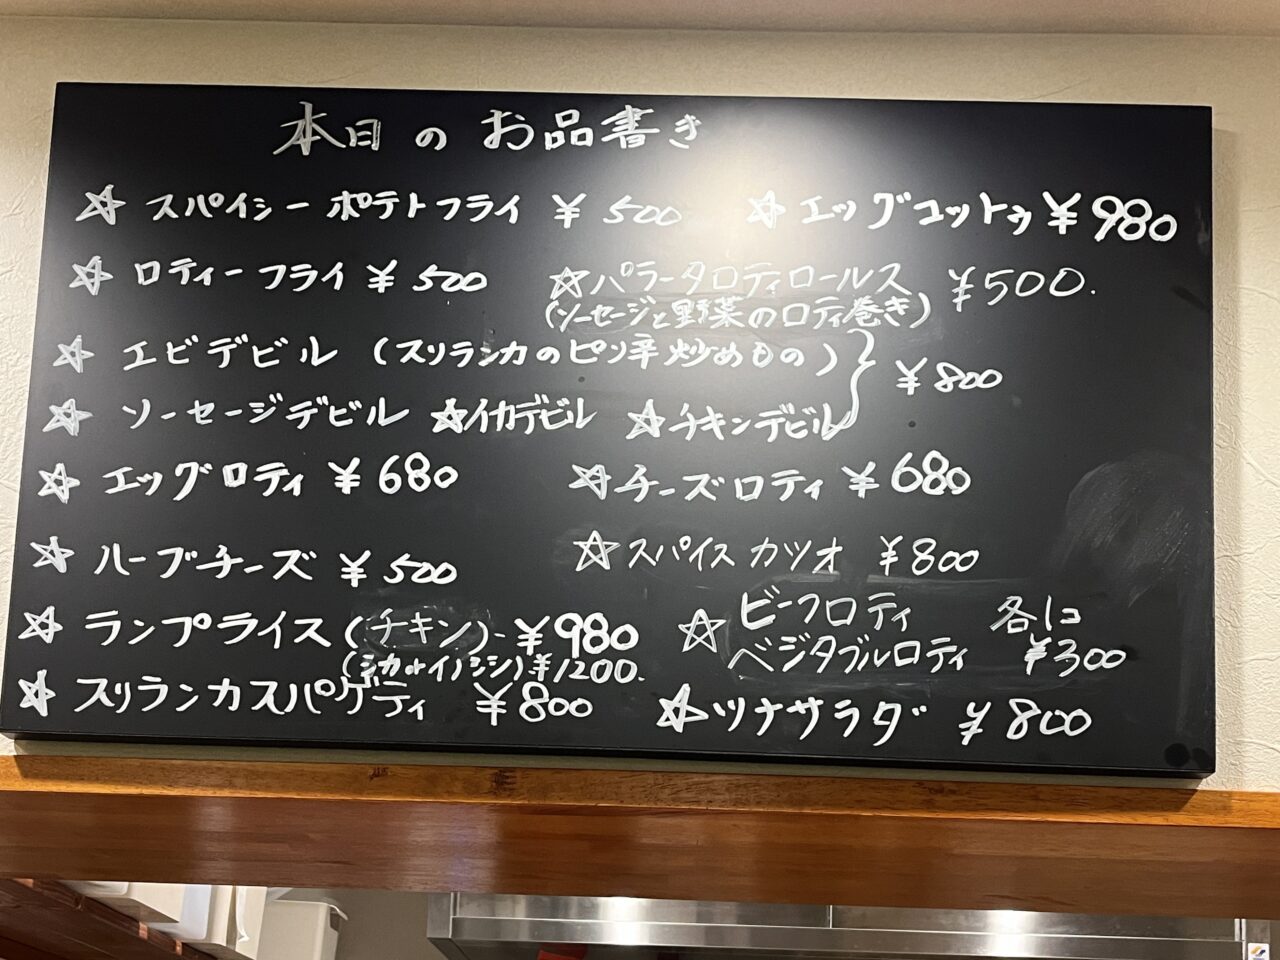 本日のお品書き
☆スパイシーポテトフライ ¥500 ☆エッグコットゥ ¥980
☆ロティーフライ ¥500 ☆パラータロティロールス ¥500.
(ソーセージと野菜のロティ巻き)
☆エビデビル (スリランカのピリ辛炒めもの) } ¥800
☆ソーセージデビル ☆イカデビル ☆チキンデビル
☆エッグロティ ¥680 ☆チーズロティ ¥680
☆ハーブチーズ ¥500 ☆スパイスカツオ ¥800
☆ランプライス(チキン)-¥980 ☆ビーフロティ 各1コ
(シカorイノシシ)¥1200. ベジタブルロティ ¥300
☆スリランカスパゲティ ¥800 ☆ツナサラダ ¥800